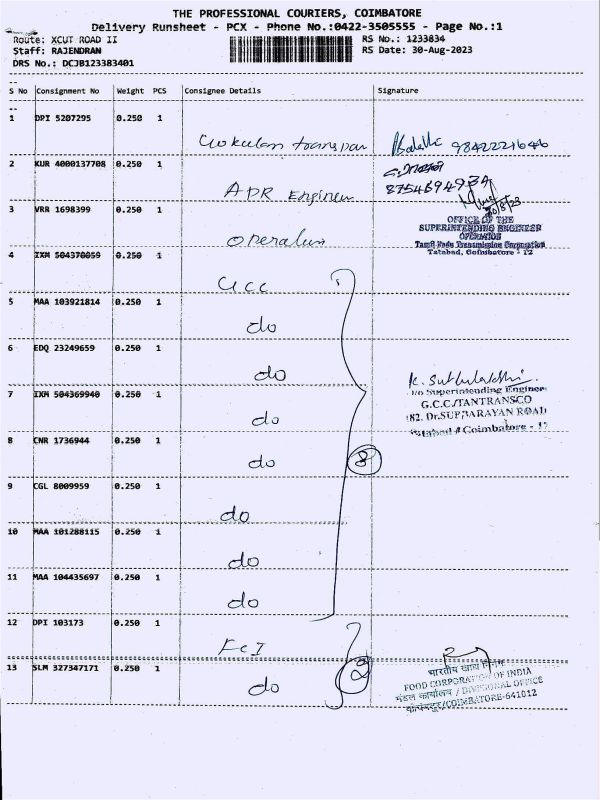 THE PROFESSIONAL COURIERS, COIMBATORE
Delivery Runsheet - PCX - Phone No.:0422-3505555 - Page No.:1
Route: XCUT ROAD II
RS No.: 1233834
Staff: RAJENDRAN
RS Date: 30-Aug-2023
DRS No.: DCJB123383401
S No Consignment No Weight PCS Consignee Details Signature
1 DPI 5207295 0.250 1
9842221646
2 KUR 4000137708 0.250 1
ADR Engineer
8754694934
3 VRR 1698399 0.250 1
30/8/23
OFFICE OF THE
SUPERINTENDING ENGINEER
OPERATION
Tamil Nadu Transmission Corporation
Tatabad, Coimbatore - 12
4 IXM 504370059 0.250 1
GCC
5 MAA 103921814 0.250 1
do
6 EDQ 23249659 0.250 1
do
7 IXM 504369940 0.250 1
do
I/o Superintending Engineer
G.C.C/TANTRANSCO
182, Dr.SUBBARAYAN ROAD
Tatabad, Coimbatore - 12
8 CNR 1736944 0.250 1
do
8
9 CGL 8009959 0.250 1
do
10 MAA 101288115 0.250 1
do
11 MAA 104435697 0.250 1
do
12 DPI 103173 0.250 1
FCI
13 SLM 327347171 0.250 1
do
2
भारतीय खाद्य निगम
FOOD CORPORATION OF INDIA
मंडल कार्यालय / DIVISIONAL OFFICE
कोयंबत्तूर/COIMBATORE-641012